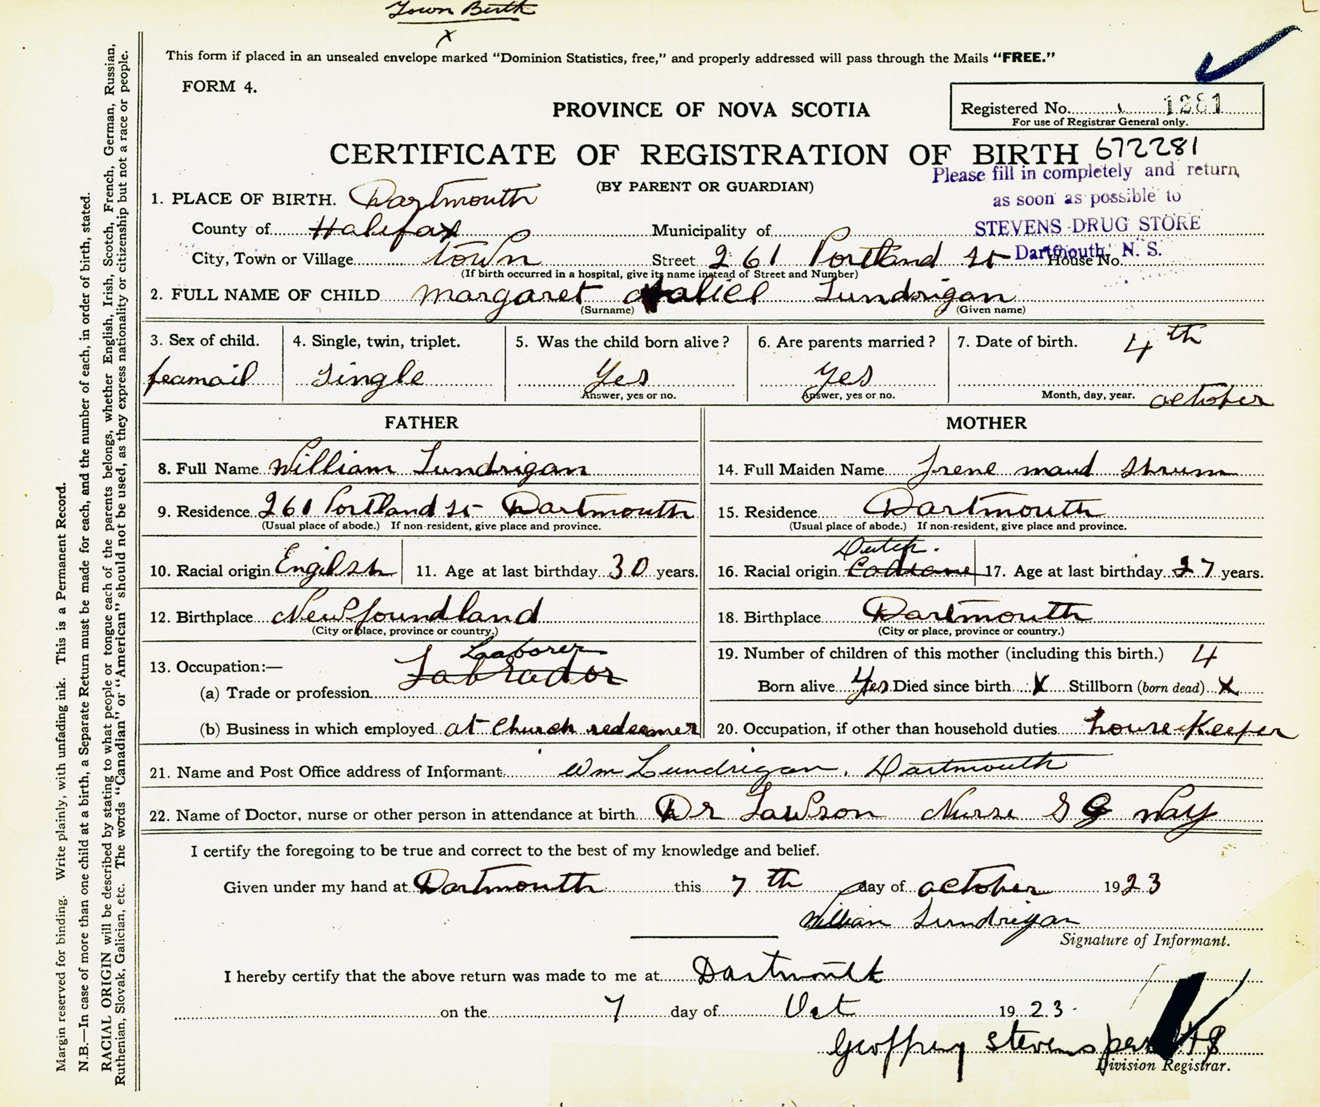 Town Birth
x
This form if placed in an unsealed envelope marked "Dominion Statistics, free," and properly addressed will pass through the Mails "FREE."
FORM 4.
PROVINCE OF NOVA SCOTIA
Registered No. 1281
For use of Registrar General only.
CERTIFICATE OF REGISTRATION OF BIRTH 672281
(BY PARENT OR GUARDIAN)
Please fill in completely and return,
as soon as possible to
STEVENS DRUG STORE
Dartmouth, N. S.
1. PLACE OF BIRTH. Dartmouth
County of Halifax Municipality of
City, Town or Village town Street 261 Portland St House No.
(If birth occurred in a hospital, give its name instead of Street and Number)
2. FULL NAME OF CHILD margaret Lundrigan
(Surname) (Given name)
3. Sex of child. 4. Single, twin, triplet. 5. Was the child born alive? 6. Are parents married? 7. Date of birth. 4th
feamail single Yes Yes october
Answer, yes or no. Answer, yes or no. Month, day, year.
FATHER MOTHER
8. Full Name William Lundrigan 14. Full Maiden Name Irene maud Shrum
9. Residence 261 Portland St Dartmouth 15. Residence Dartmouth
(Usual place of abode.) If non-resident, give place and province. (Usual place of abode.) If non-resident, give place and province.
Dutch.
10. Racial origin Engilsh 11. Age at last birthday 30 years. 16. Racial origin 17. Age at last birthday 27 years.
12. Birthplace Newfoundland 18. Birthplace Dartmouth
(City or place, province or country.) (City or place, province or country.)
13. Occupation:— Laborer 19. Number of children of this mother (including this birth.) 4
(a) Trade or profession Labrador Born alive Yes Died since birth X Stillborn (born dead) X
(b) Business in which employed at Church redeemer 20. Occupation, if other than household duties house Keeper
21. Name and Post Office address of Informant Wm Lundrigan, Dartmouth
22. Name of Doctor, nurse or other person in attendance at birth Dr Lawson Nurse S G Way
I certify the foregoing to be true and correct to the best of my knowledge and belief.
Given under my hand at Dartmouth this 7 th day of october 1923
William Lundrigan
Signature of Informant.
I hereby certify that the above return was made to me at Dartmouth
on the 7 day of Oct 1923.
Geoffrey Stevens per
Division Registrar.
Margin reserved for binding. Write plainly, with unfading ink. This is a Permanent Record.
N.B.—In case of more than one child at a birth, a Separate Return must be made for each, and the number of each, in order of birth, stated.
RACIAL ORIGIN will be described by stating to what people or tongue each of the parents belongs, whether English, Irish, Scotch, French, German, Russian,
Ruthenian, Slovak, Galician, etc. The words "Canadian" or "American" should not be used, as they express nationality or citizenship but not a race or people.